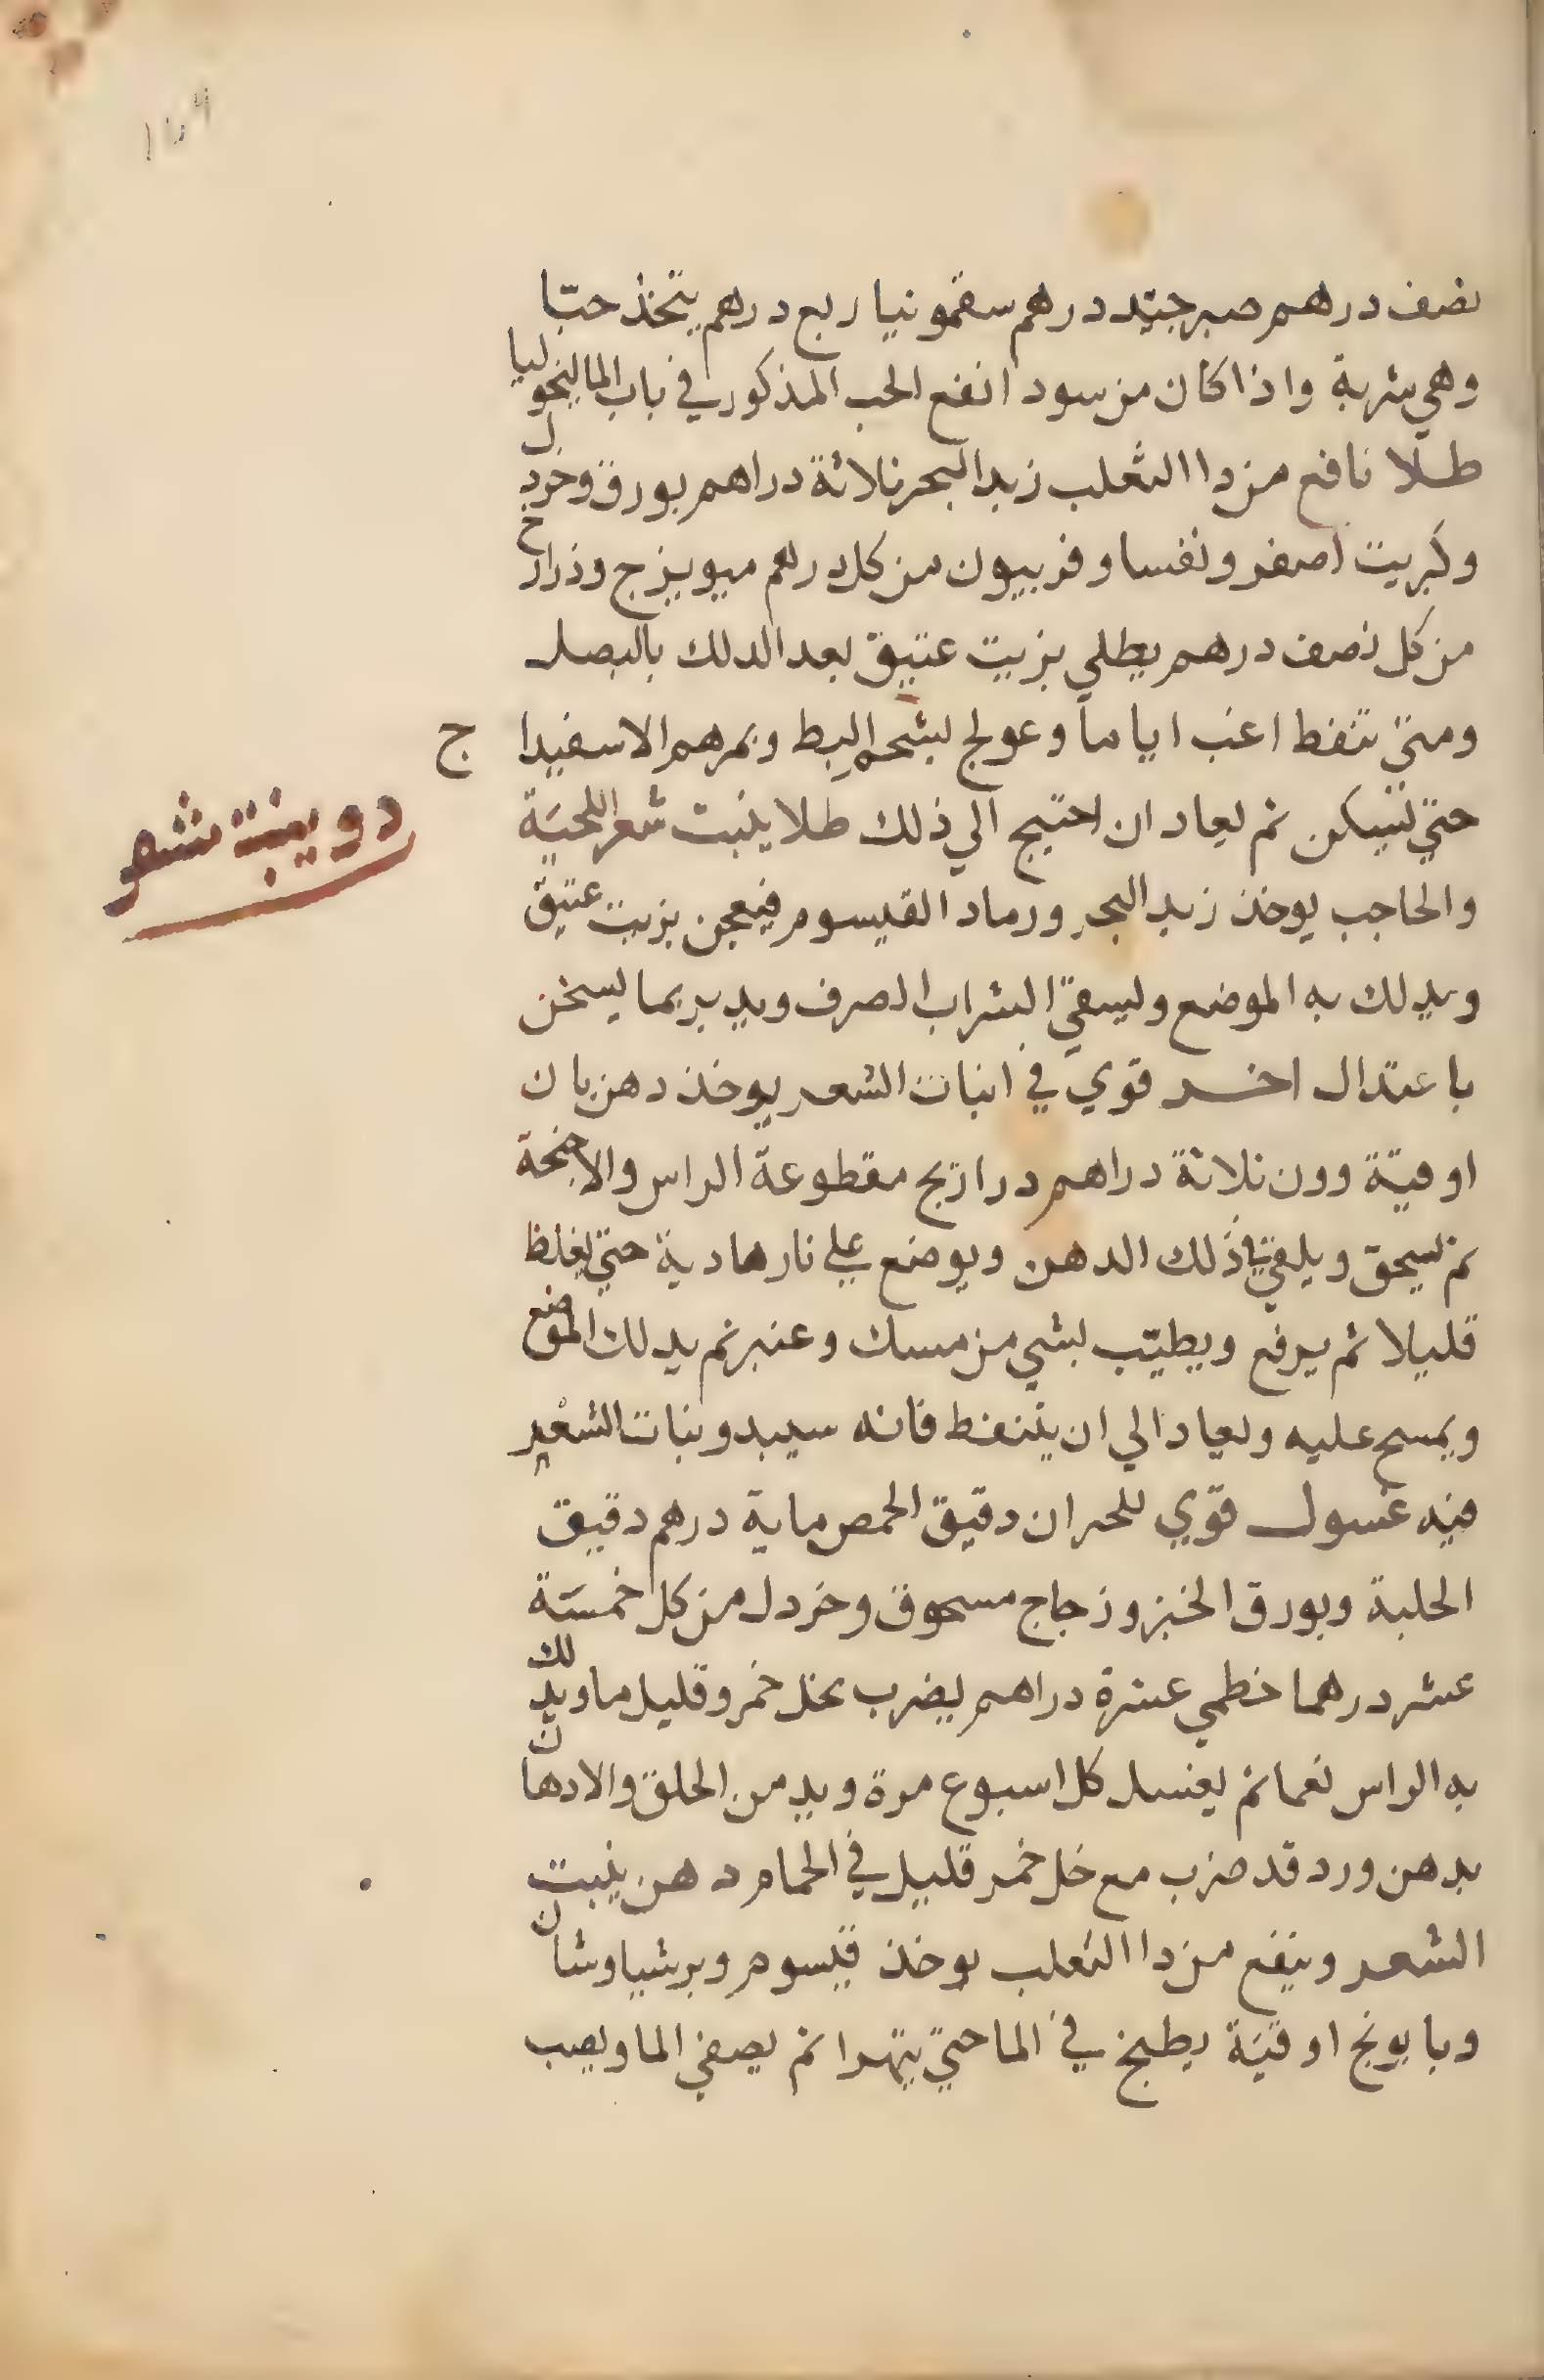 نصف درهم صبر جيّد درهم سقمونيا ربع درهم يتخذ حبّا
وهي شربة واذا كان من سودا نفع الحب المذكور في باب الماليخوليا
طلا نافع من دا الثعلب زبد البحر ثلاثة دراهم بورق وخردل
وكبريت اصفر وتفسيا وفربيون من كل درهم ميويزج وذراريح
من كل نصف درهم يطلي بزيت عتيق بعد الدلك بالبصل
ومتي تنفط اغب اياماً وعولج بشحم البط وبمرهم الاسفيداج
حتي يسكن ثم يعاد ان احتيج الي ذلك طلا ينبت شعر اللحيَة
والحاجب يوخذ زبد البحر ورماد القيسوم فيعجن بزيت عتيق
ويدلك به الموضع ويسقيّ الشراب الصرف ويدبر بما يسخن
باعتدال اخر قوي في انبات الشعر يوخذ دهن بان
اوقيّة وون ثلاثة دراهم دراريح مقطوعة الراس والاجنحة
ثم تسحق ويلقي في ذلك الدهن ويوضع علي نار هادية حتي يغلظ
قليلا ثم يرفع ويطيّب بشي من مسك وعنبر ثم يدلك الموضع
ويمسح عليه ويعاد الي ان يتنفط فانه سيبدو نبات الشعر
فيه غسول قوي للحزاز دقيق الحمص ماية درهم دقيق
الحلبة وبورق الخبز وزجاج مسحوق وخردل من كل خمسَة
عشر درهما خطمي عشرة دراهم يضرب بخل خمر وقليل ما ويدلك
به الراس نعما ثم يغسل كل اسبوع مرة ويدمن الحلق والادهان
بدهن ورد قد ضرب مع خل خمر قليل في الحمام دهن ينبت
الشعر وينفع من دا الثعلب يوخذ قيسوم وبرشياوشان
وبابونج اوقيَة يطبخ في الما حتي يتهرا ثم يصفي الما ويصب